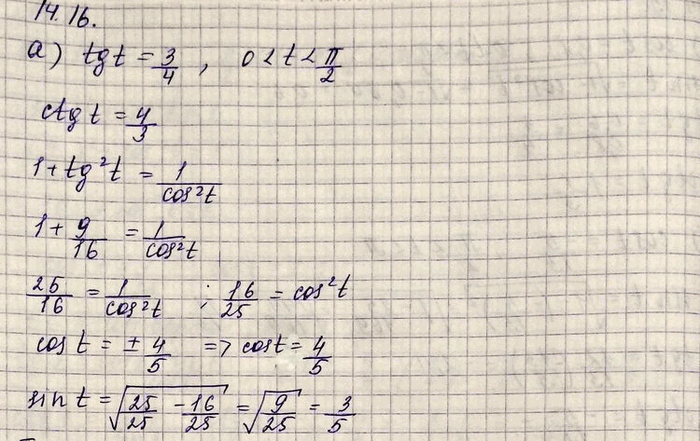 14.16.
а) tg t = 3/4 , 0 < t < π/2
ctg t = 4/3
1 + tg²t = 1/cos²t
1 + 9/16 = 1/cos²t
25/16 = 1/cos²t ; 16/25 = cos²t
cos t = ± 4/5 => cos t = 4/5
sin t = √(25/25 - 16/25) = √(9/25) = 3/5